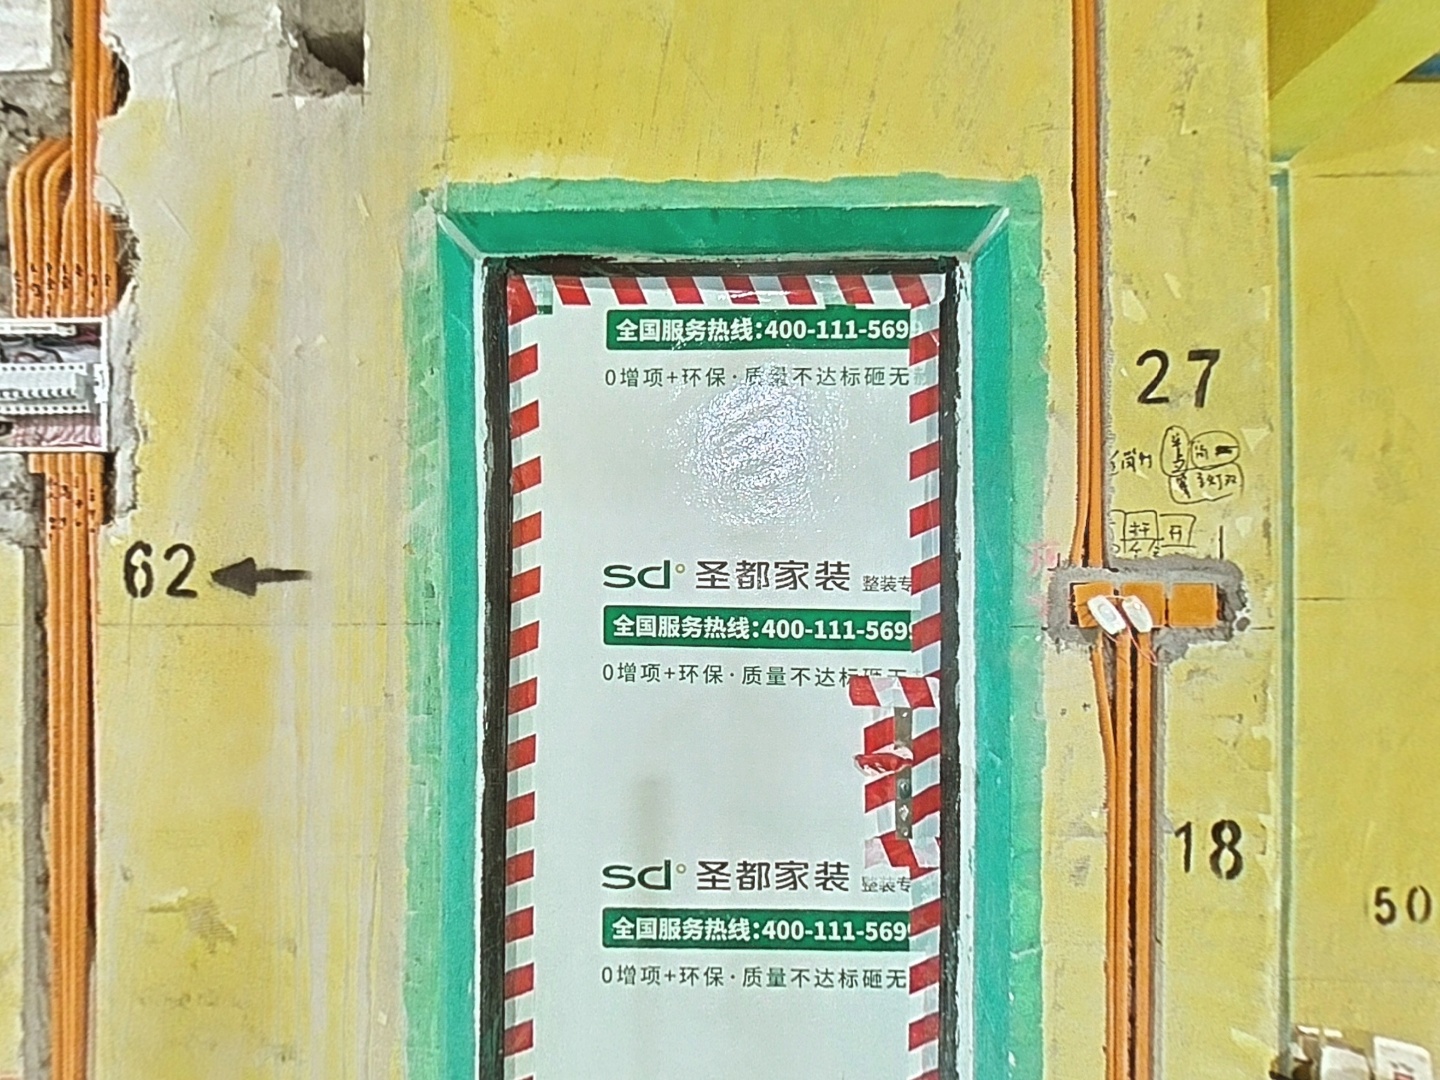 全国服务热线:400-111-569
0增项+环保·质量不达标砸无
27
sd 圣都家装 整装专
62
全国服务热线:400-111-569
0增项+环保·质量不达标砸无
18
sd 圣都家装 整装专
50
全国服务热线:400-111-569
0增项+环保·质量不达标砸无